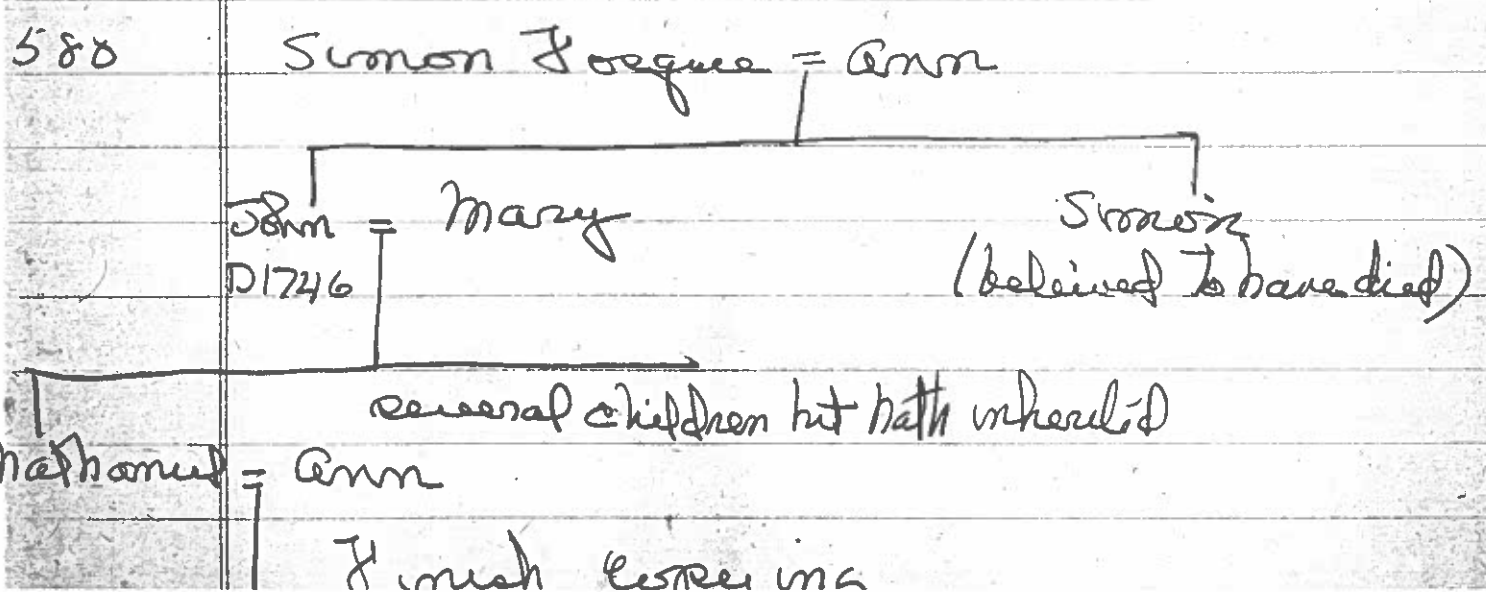 588 Simon Foague = Ann
John = Mary Simon
D1746 (beleived To have died)
several children but Nath inherited
Nathaniel = Ann
Finish